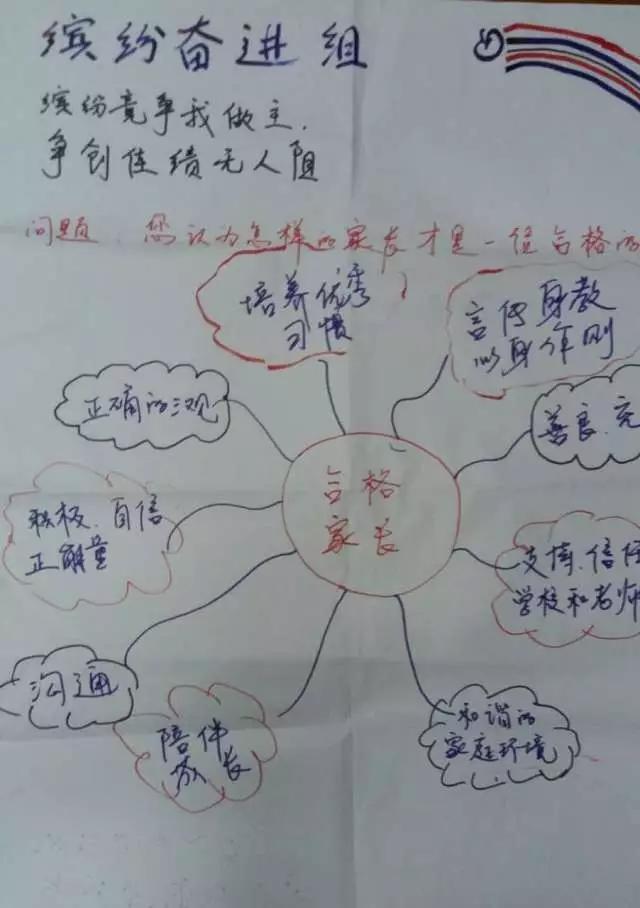 缤纷奋进组
缤纷竞争我做主.
争创佳绩无人阻
问题:您认为怎样的家长才是一位合格的
培养优秀
习惯
言传身教
以身作则
正确的三观
善良.充
合格
家长
积极.自信
正能量
支持.信任
学校和老师
沟通
陪伴
成长
和谐的
家庭环境